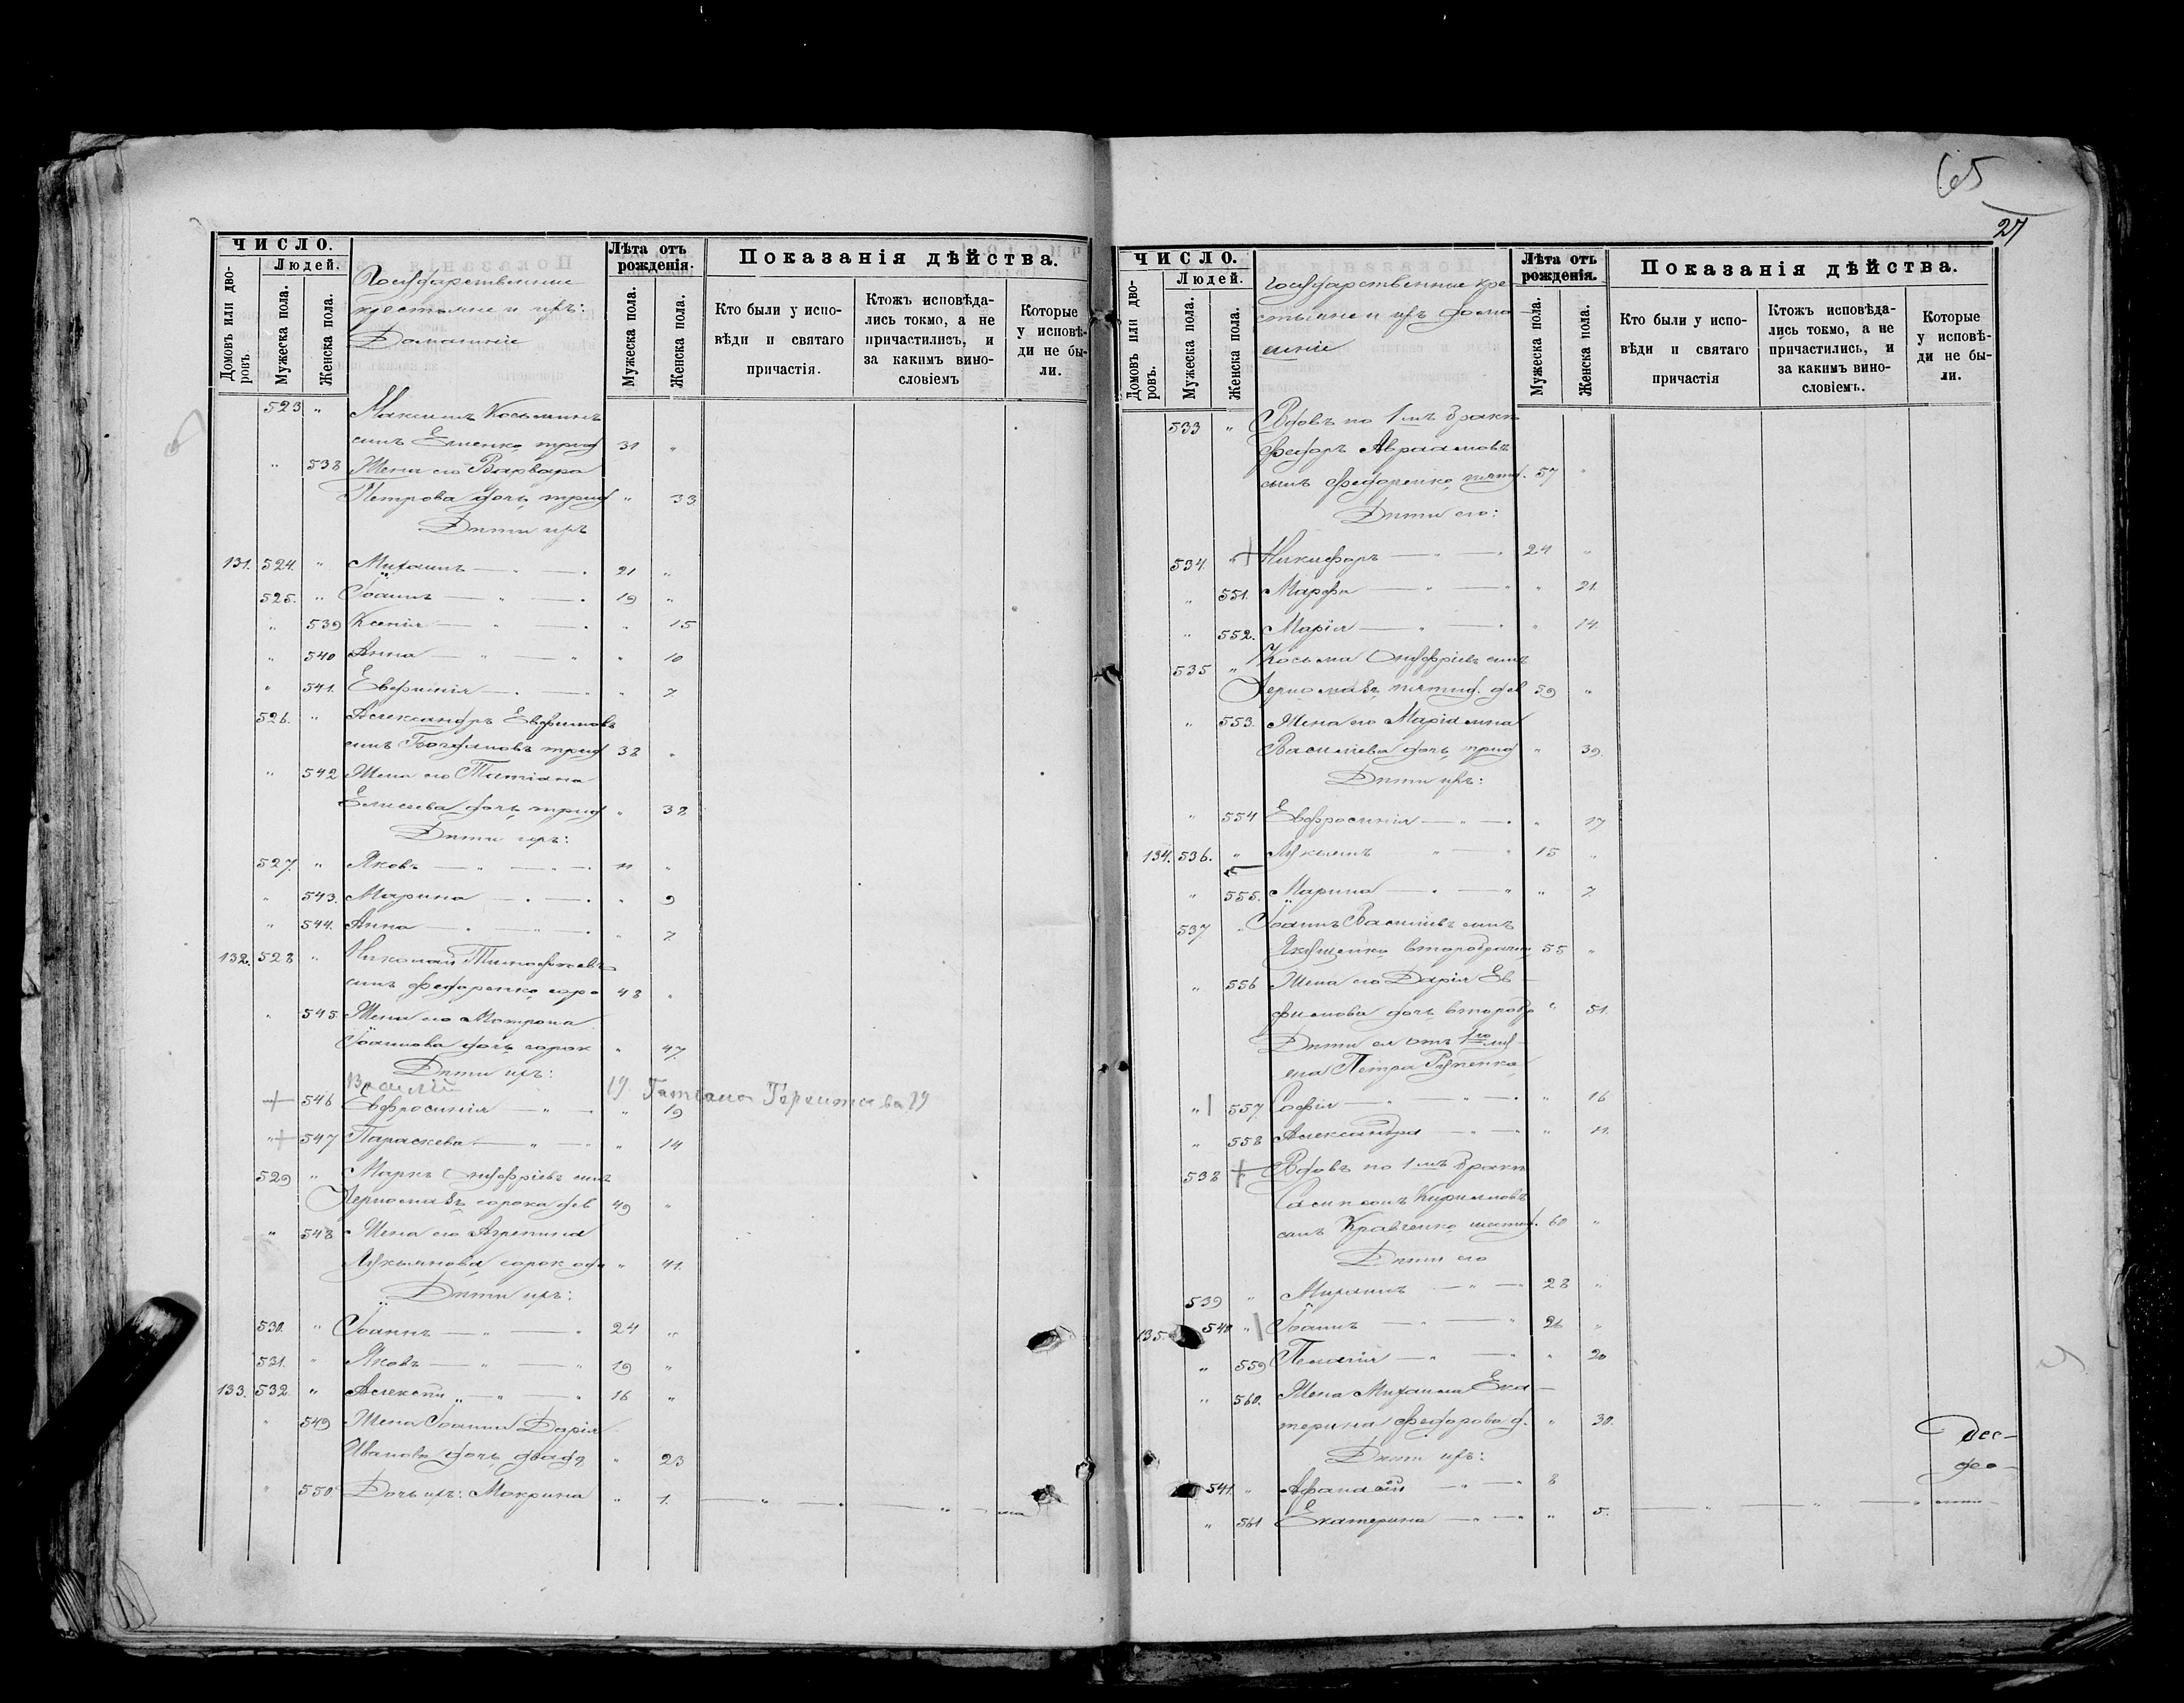 65
27
ЧИСЛО.
Людей.
Домовъ или дворовъ.
Мужеска пола.
Женска пола.
Государственные
крестьяне и ихъ:
Домашніе
Лѣта отъ рожденія.
Мужеска пола.
Женска пола.
Показанія дѣйства.
Кто были у исповѣди и святаго причастія.
Ктожъ исповѣдались токмо, а не причастились, и за какимъ винословіемъ
Которые у исповѣди не были.
523 " Максимъ Косьминъ
сынъ Еленко 31 "
" 538 Жена его Варвара
Петрова дочь " 33
Дѣти ихъ
131. 524. " Михаилъ — " — . 21 "
525. " Іоаннъ — " — . 19 "
" 539 Ксенія — " — . " 15
" 540 Анна — " — " " 10
" 541. Евфимія — . — " 7
526. " Александръ Евфимовъ
сынъ Богдановъ 38 "
" 542 Жена его Татіана
Елисеева дочь " 38
Дѣти ихъ:
527. " Яковъ — " — " — . 11 "
" 543. Марина — . — . " 9
" 544. Анна — . — " — . " 7
132. 528 " Николай Тимофѣевъ
сынъ Федоренко 48 "
" 545. Жена его Матрона
Іоаннова дочь сорок " 47
Дѣти ихъ:
Василій 19 Татіана 19
546 Евфросинія — " — . " 19
" 547 Параскева — " — " 14
529 " Маркъ Онуфріевъ сынъ
сорока дев 49 "
" 548 Жена его Агрепина
Лукьянова сорок одн " 41.
Дѣти ихъ:
530. " Іоаннъ — " — " 24 "
531. " Яковъ — " — " 19 "
133. 532. " Алексѣй " — " — " 16 "
" 549 Жена Іоанна Дарія
Иванова дочь двадц " 23
" 550 Дочь ихъ: Макрина " 1.
ЧИСЛО.
Людей.
Домовъ или дворовъ.
Мужеска пола.
Женска пола.
Государственные кре
стьяне и ихъ дома
шніе
Лѣта отъ рожденія.
Мужеска пола.
Женска пола.
Показанія дѣйства.
Кто были у исповѣди и святаго причастія
Ктожъ исповѣдались токмо, а не причастились, и за какимъ винословіемъ.
Которые у исповѣди не были.
533 " Вдовъ по 1мъ бракѣ
Федоръ Авраамовъ
сынъ Федоренко пятид. 57 "
Дѣти его:
534. " Никифоръ — " — . 24 "
" 551. Марфа — " — " " 21.
" 552. Марія — " — " " 14.
535 " Косьма Онуфріевъ сынъ
пятид. дев 59 "
" 553. Жена его Маріамна
Василіева дочь " 39.
Дѣти ихъ:
" 554 Евфросинія — " — . " 17
134. 536. " Лукіянъ " — " 15 "
" 555. Марина — . — " " 7.
537 " Іоаннъ Василіевъ сынъ
второбрачн 55 "
" 556 Жена его Дарія Ев
фимова дочь второбр " 51.
Дѣти ея отъ 1го му
жа Петра
" 557. Софія — " " — . " 16
" 558 Александра — " — " " 11.
538 Вдовъ по 1мъ бракѣ
Кирилловъ
сынъ Кравченко шестид. 60 "
Дѣти его
539 " Михаилъ — " — " 28 "
135. 540 " Іоаннъ — " — " 26 "
" 559 Пелагія — " — " " 20
" 560. Жена Михаила Ека—
терина Федорова д. " 30.
Дѣти ихъ:
541. " Афанасій — " — " 8
" 561 Екатерина — " — " " 5.